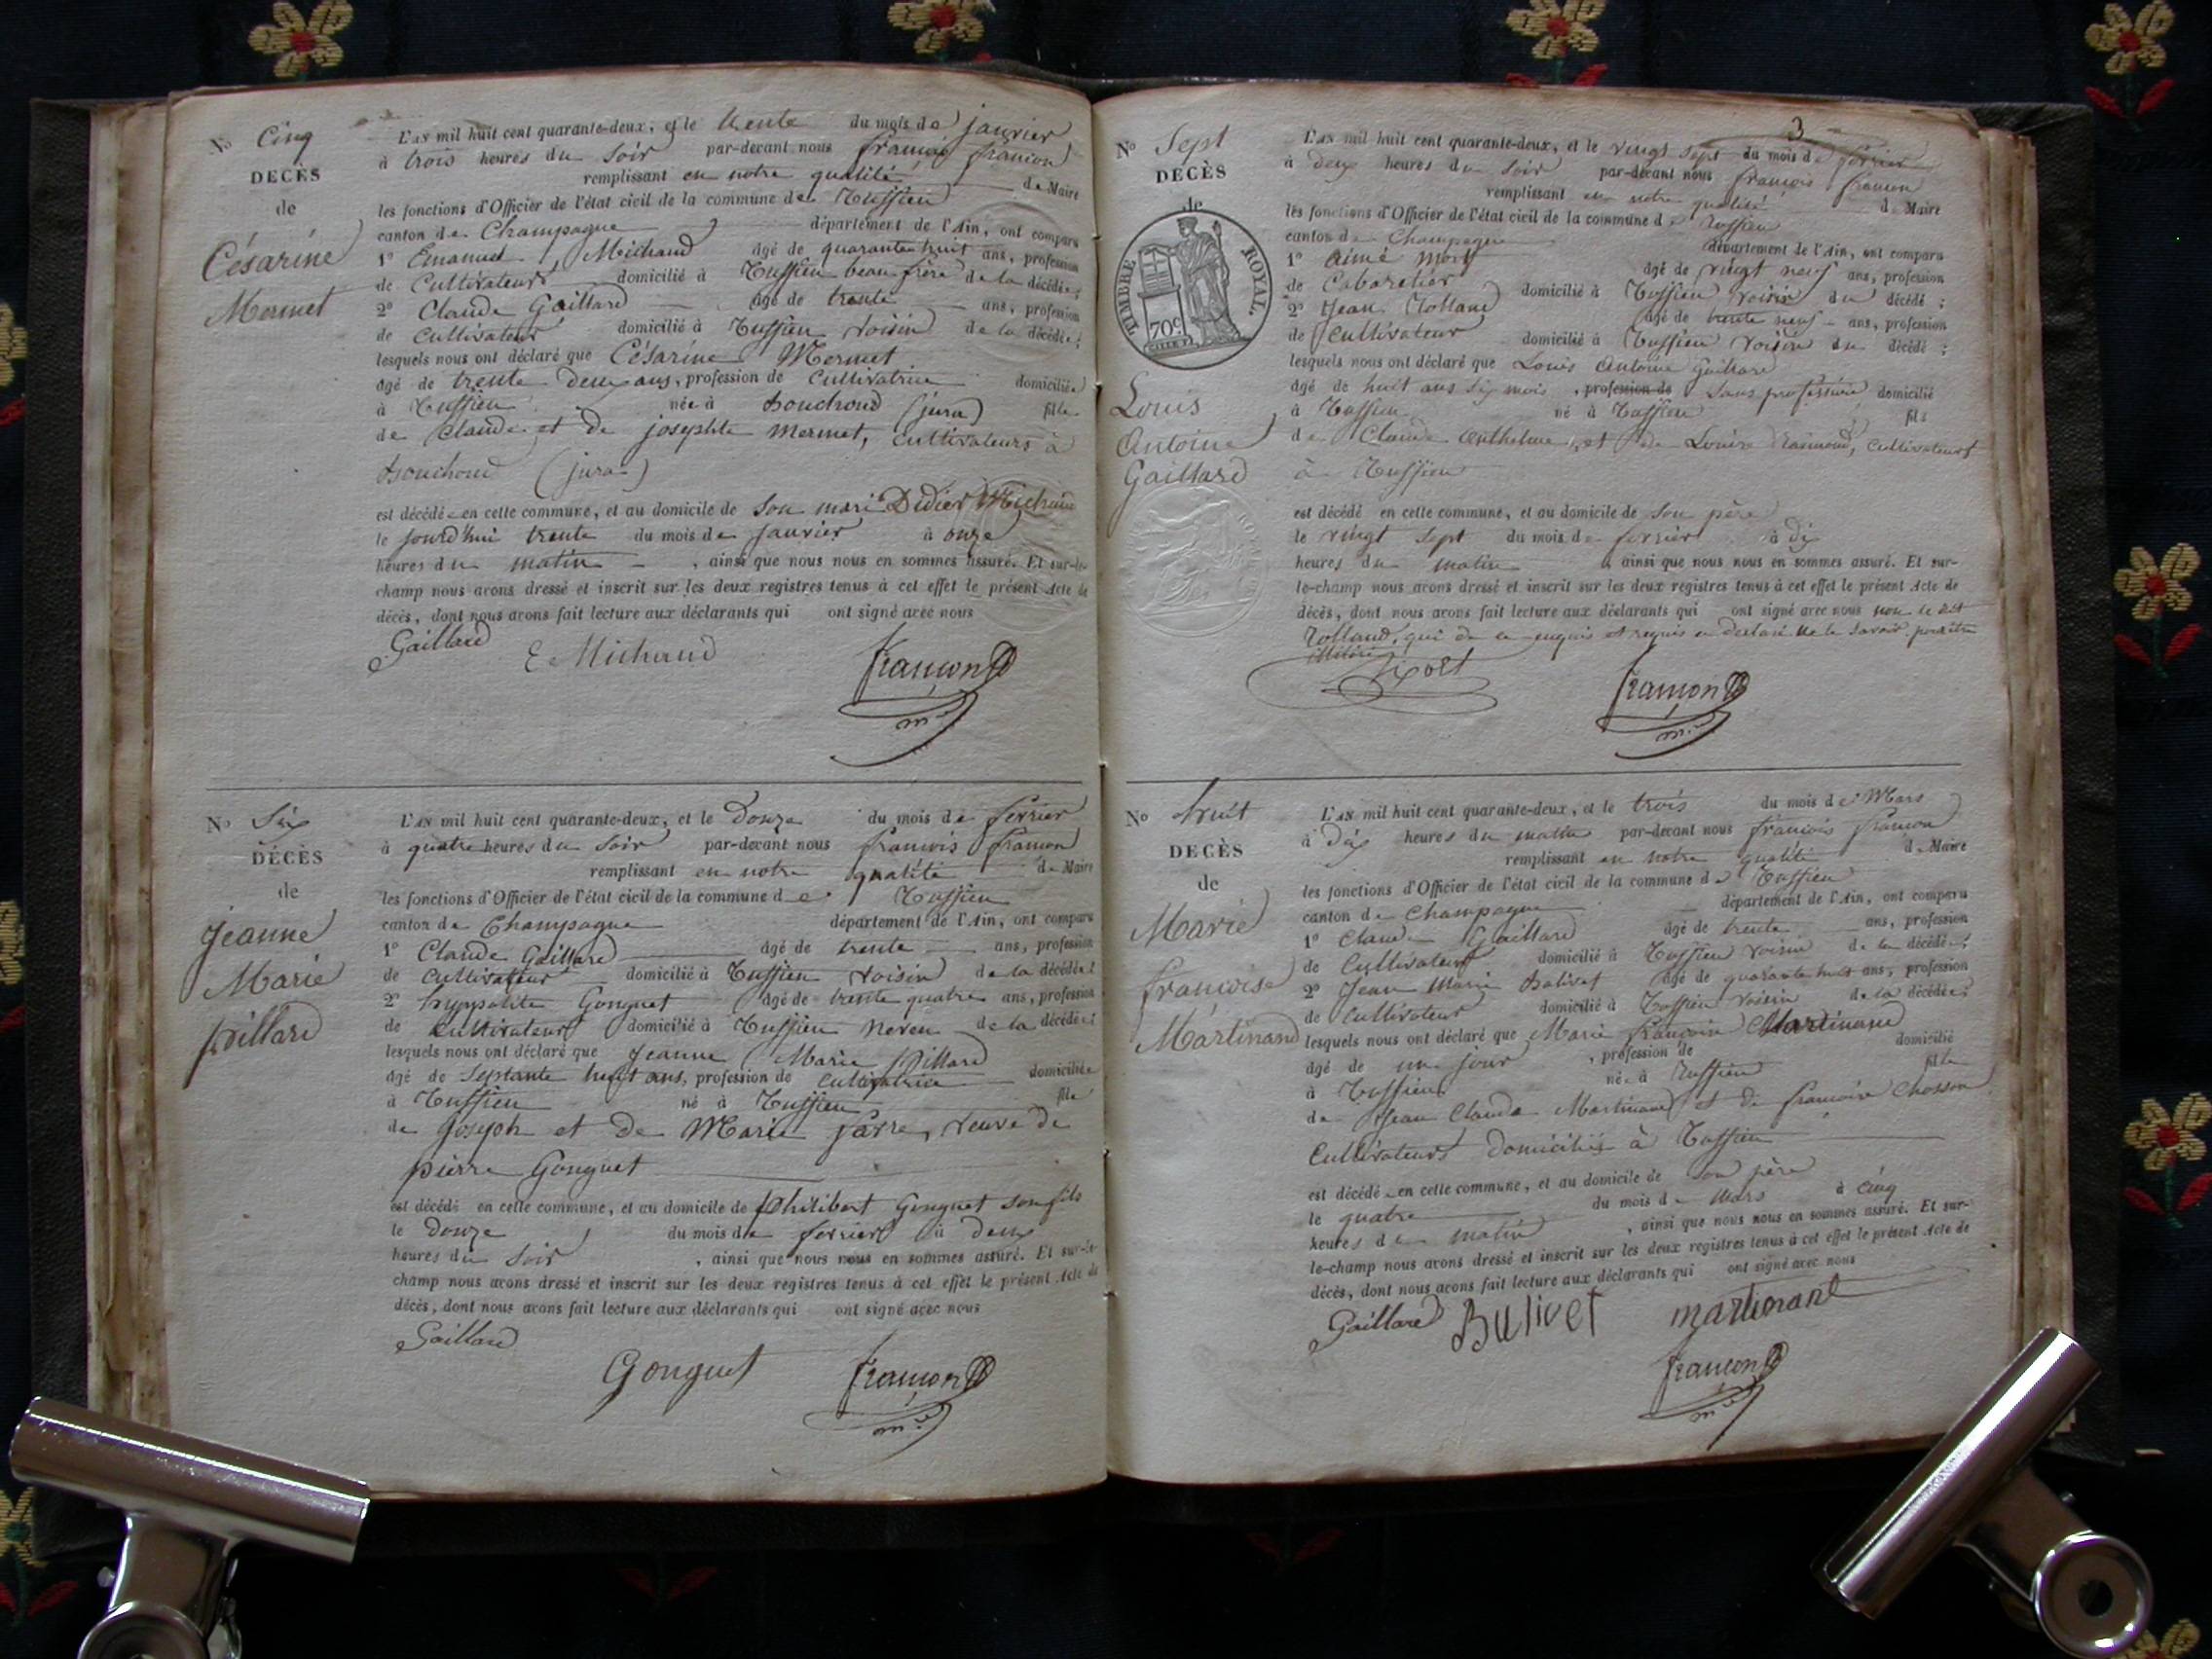 No Cinq
DECÈS
de
Césarine
Mermet
L'AN mil huit cent quarante-deux, et le trente du mois de janvier
à trois heures du Soir par-devant nous françois françon
remplissant en notre qualité de Maire
les fonctions d'Officier de l'état civil de la commune de
canton de Champagne département de l'Ain, ont comparu
1° Emanuel Michaud âgé de quarante huit ans, profession
de Cultivateur domicilié à beau frère de la décédée;
2° Claude Gaillard âgé de trente ans, profession
de cultivateur domicilié à voisin de la décédée;
lesquels nous ont déclaré que Césarine Mermet
âgé de trente deux ans, profession de cultivatrice domiciliée
à née à (jura) fille
de Claude et de josephte mermet, cultivateurs à
(jura)
est décédée en cette commune, et au domicile de Son mari Didier Michaud
le jourd'hui trente du mois de janvier à onze
heures du matin , ainsi que nous nous en sommes assuré. Et sur-le-
champ nous avons dressé et inscrit sur les deux registres tenus à cet effet le présent Acte de
décès, dont nous avons fait lecture aux déclarants qui ont signé avec nous
Gaillard E Michaud françon
m.re
No Six
DÉCÈS
de
Jeanne
Marie
pillard
L'AN mil huit cent quarante-deux, et le Douze du mois de fevrier
à quatre heures du Soir par-devant nous francois françon
remplissant en notre qualité de Maire
les fonctions d'Officier de l'état civil de la commune de
canton de Champagne département de l'Ain, ont comparu
1° Claude Gaillard âgé de trente ans, profession
de cultivateur domicilié à voisin de la décédée;
2° hyppolite Gonguet âgé de trente quatre ans, profession
de cultivateur domicilié à neveu de la décédée;
lesquels nous ont déclaré que Jeanne Marie pillard
âgé de Septante huit ans, profession de cultivatrice domiciliée
à né à fille
de Joseph et de Marie veuve de
pierre Gonguet
est décédé en cette commune, et au domicile de philibert Gonguet son fils
le douze du mois de fevrier à deux
heures du Soir , ainsi que nous nous en sommes assuré. Et sur-le-
champ nous avons dressé et inscrit sur les deux registres tenus à cet effet le présent Acte de
décès, dont nous avons fait lecture aux déclarants qui ont signé avec nous
Gaillard Gonguet françon
m.re
3
No Sept
DÉCÈS
de
TIMBRE ROYAL.
70c
Louis
Antoine
Gaillard
L'AN mil huit cent quarante-deux, et le vingt Sept du mois de fevrier
à deux heures du Soir par-devant nous françois françon
remplissant en notre qualité de Maire
les fonctions d'Officier de l'état civil de la commune de
canton de Champagne département de l'Ain, ont comparu
1° aimé âgé de vingt neuf ans, profession
de Cabaretier domicilié à voisin du décédé;
2° Jean Rolland âgé de trente neuf ans, profession
de cultivateur domicilié à voisin du décédé;
lesquels nous ont déclaré que Louis Antoine Gaillard
âgé de huit ans Six mois , profession de Sans profession domicilié
à né à fils
de Claude Anthelme et de Louise cultivateurs
à
est décédé en cette commune, et au domicile de son père
le vingt Sept du mois de fevrier à dix
heures du matin ainsi que nous nous en sommes assuré. Et sur-
le-champ nous avons dressé et inscrit sur les deux registres tenus à cet effet le présent Acte de
décès, dont nous avons fait lecture aux déclarants qui ont signé avec nous non le dit
Rolland, qui de ce enquis et requis a déclaré ne le savoir pour être
illitéré
françon
m.re
No huit
DECÈS
de
Marie
francoise
Martinand
L'AN mil huit cent quarante-deux, et le trois du mois de Mars
à Dix heures du matin par-devant nous françois françon
remplissant en notre qualité de Maire
les fonctions d'Officier de l'état civil de la commune de
canton de Champagne département de l'Ain, ont comparu
1° Claude Gaillard âgé de trente ans, profession
de Cultivateur domicilié à voisin de la décédée;
2° Jean Marie Balivet âgé de quarante huit ans, profession
de cultivateur domicilié à voisin de la décédée;
lesquels nous ont déclaré que Marie francoise Martinand
âgé de un jour , profession de domicilié
à née à fille
de Jean Claude Martinand et de francoise Chosson
Cultivateurs domiciliés à
est décédée en cette commune, et au domicile de son père
le quatre du mois de Mars à cinq
heures du matin , ainsi que nous nous en sommes assuré. Et sur-
le-champ nous avons dressé et inscrit sur les deux registres tenus à cet effet le présent Acte de
décès, dont nous avons fait lecture aux déclarants qui ont signé avec nous
Gaillard Balivet martinant
françon
m.re